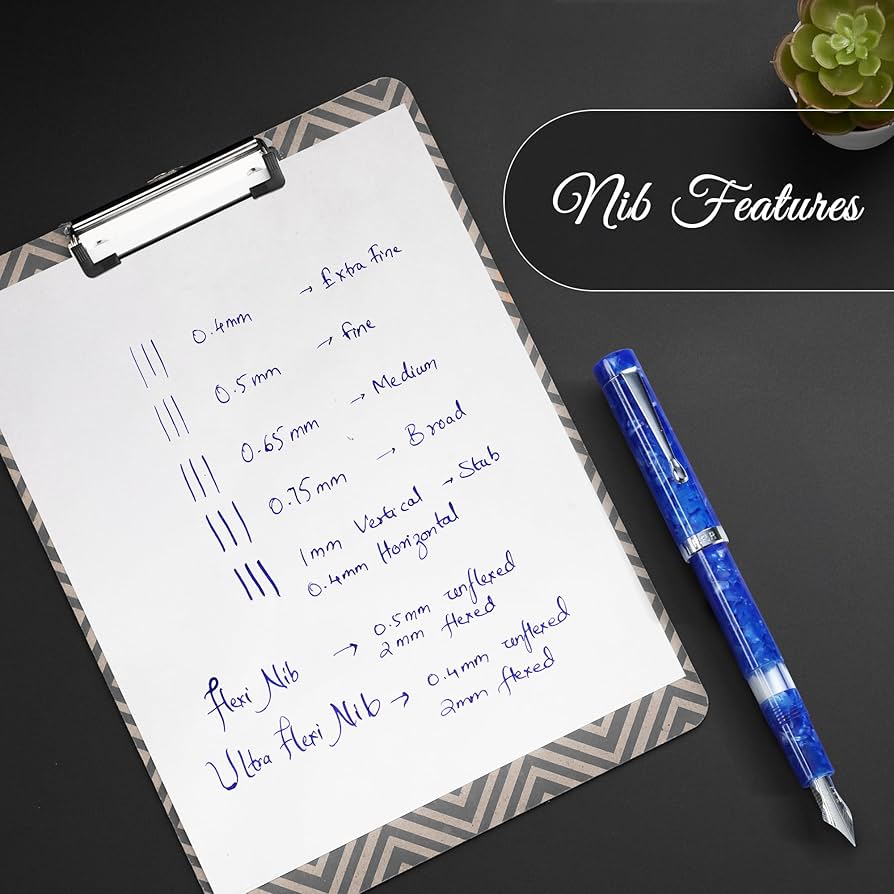 Nib Features
0.4mm → Extra Fine
0.5mm → Fine
0.65mm → Medium
0.75mm → Broad
1mm Vertical → Stub
0.4mm Horizontal
Flexi Nib → 0.5mm unflexed
2mm flexed
Ultra Flexi Nib → 0.4mm unflexed
2mm flexed